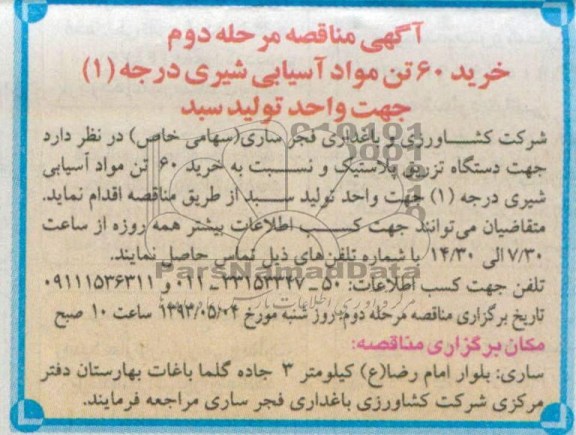 آگهی مناقصه مرحله دوم
خرید ۶۰ تن مواد آسیابی شیری درجه (۱)
جهت واحد تولید سبد
شرکت کشاورزی و باغداری فجر ساری(سهامی خاص) در نظر دارد
جهت دستگاه تزریق پلاستیک و نسبت به خرید ۶۰ تن مواد آسیابی
شیری درجه (۱) جهت واحد تولید سبد از طریق مناقصه اقدام نماید.
متقاضیان می‌توانند جهت کسب اطلاعات بیشتر همه روزه از ساعت
۷/۳۰ الی ۱۴/۳۰ با شماره تلفن‌های ذیل تماس حاصل نمایند.
ParsNamadData
تلفن جهت کسب اطلاعات: ۵۰ ـ ۳۳۱۵۳۳۴۷ ـ ۰۱۱ و ۰۹۱۱۱۵۳۶۳۱۱
تاریخ برگزاری مناقصه مرحله دوم: روز شنبه مورخ ۱۳۹۳/۰۵/۰۴ ساعت ۱۰ صبح
مکان برگزاری مناقصه:
ساری: بلوار امام رضا(ع) کیلومتر ۳ جاده گلما باغات بهارستان دفتر
مرکزی شرکت کشاورزی باغداری فجر ساری مراجعه فرمایند.